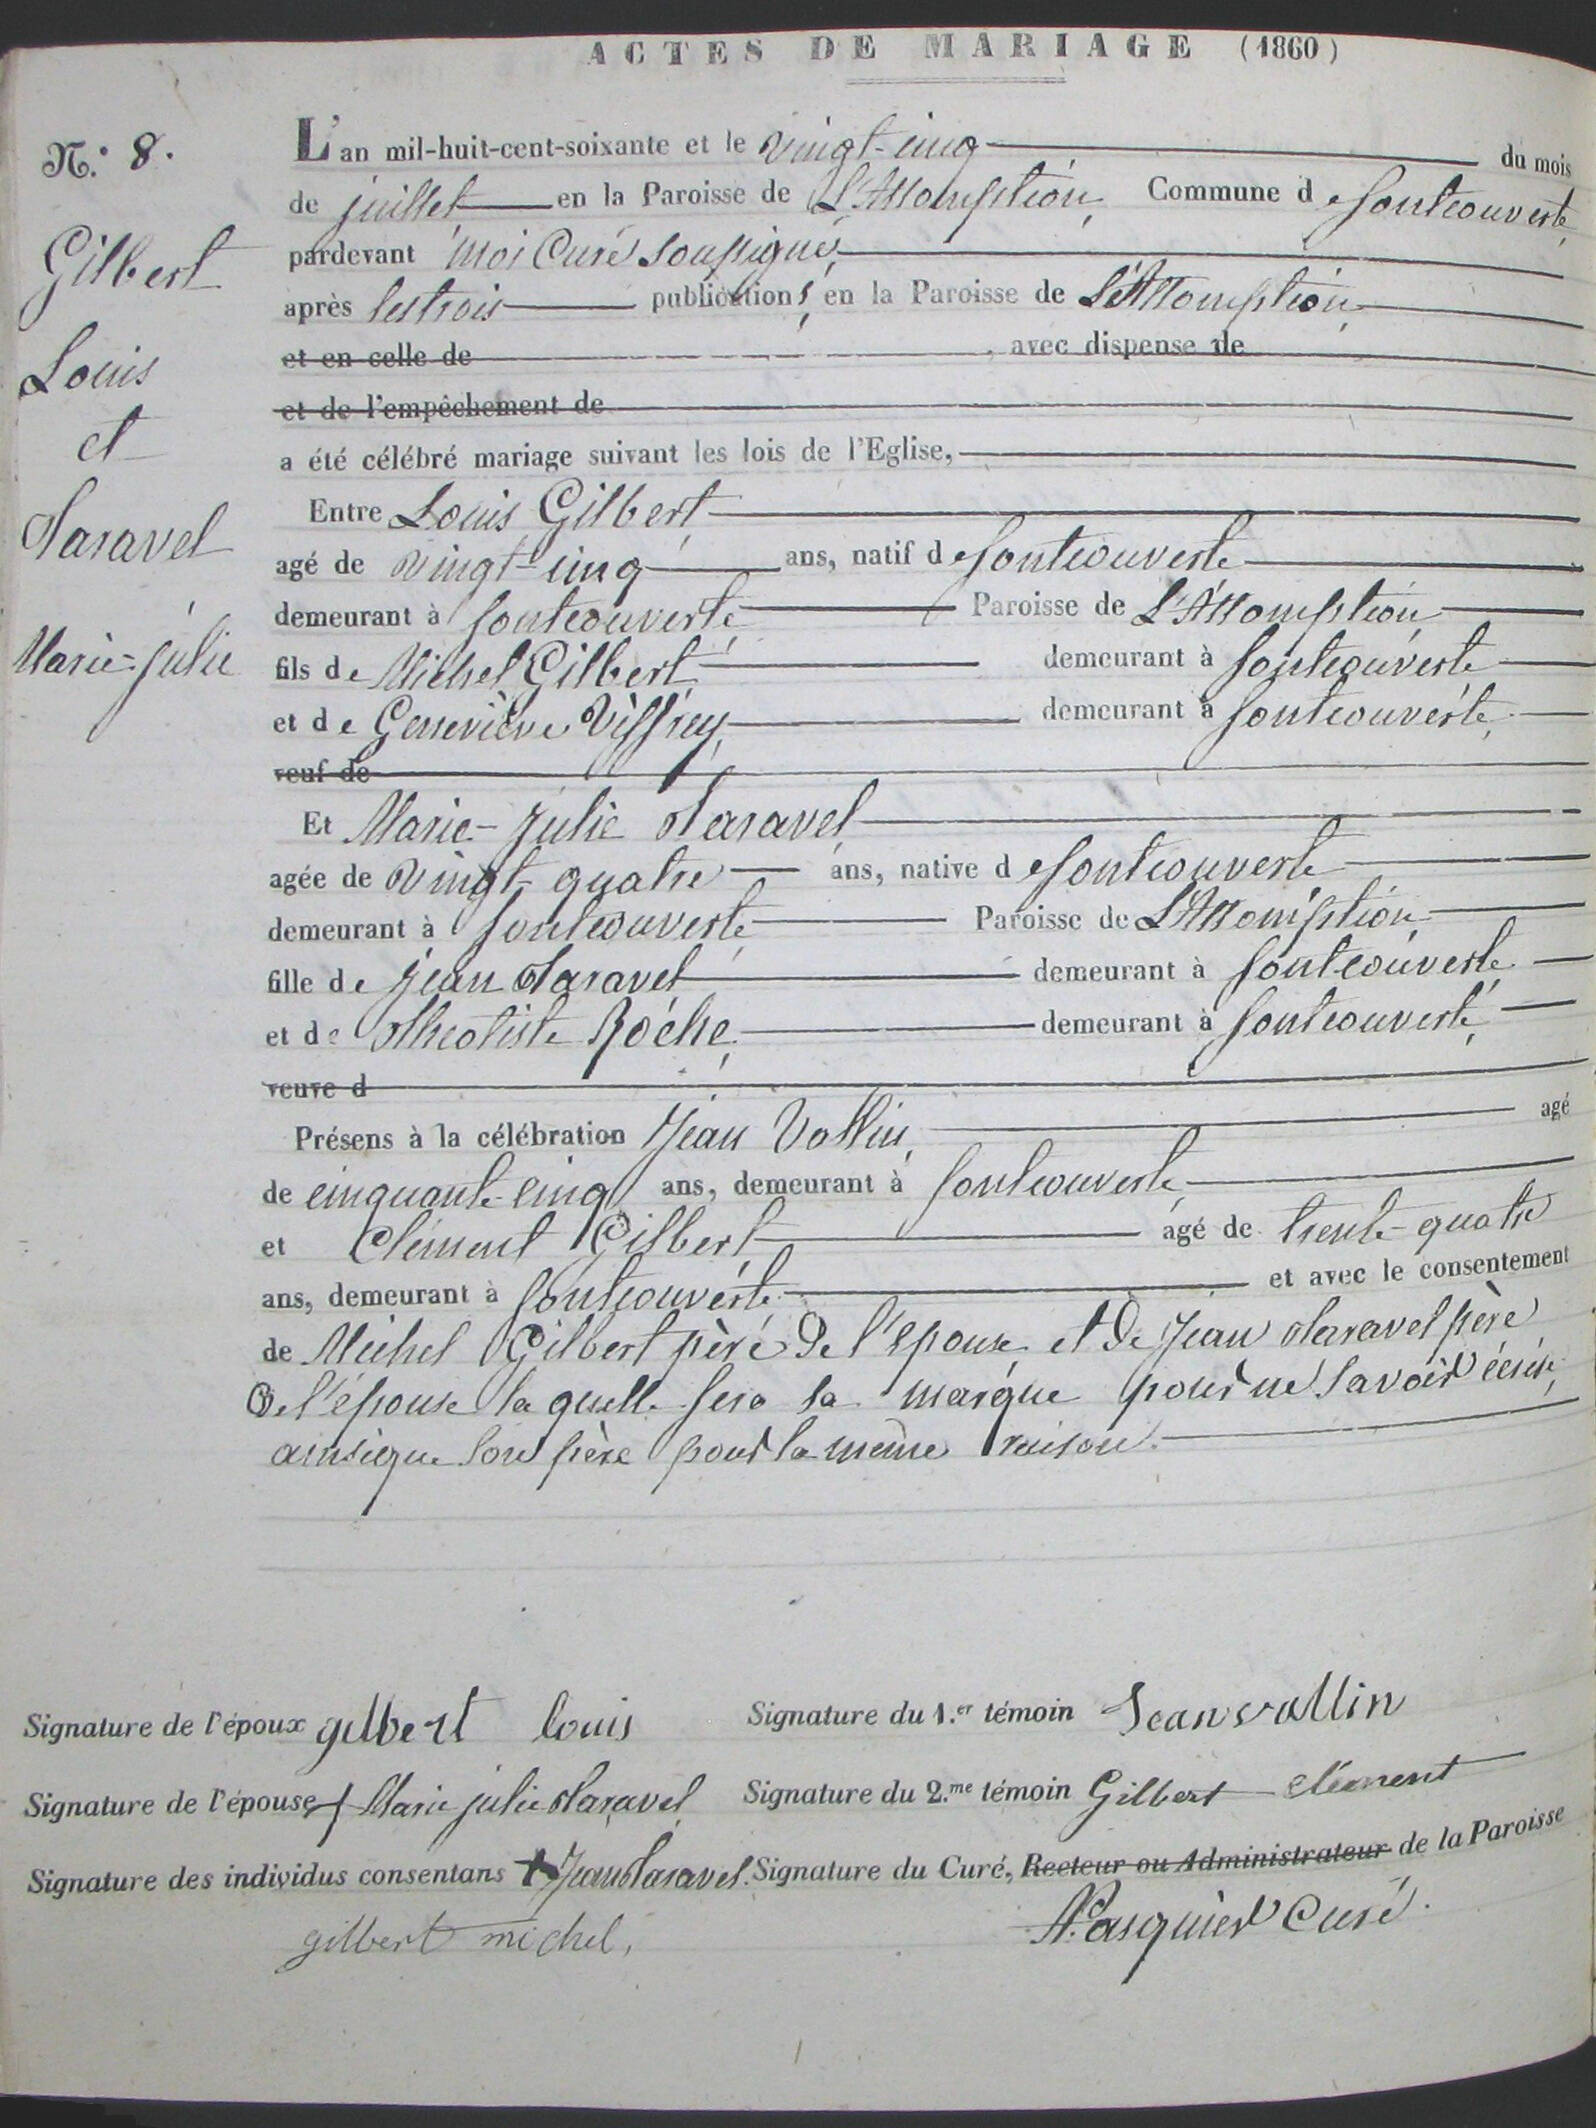 ACTES DE MARIAGE (1860)
N.° 8.
Gilbert
Louis
et
Taravel
Marie-julie
L'an mil-huit-cent-soixante et le vingt-cinq du mois
de juillet en la Paroisse de L'Assomption, Commune de fontcouverte,
pardevant moi Curé soussigné,
après les trois publications, en la Paroisse de L'Assomption,
et en celle de , avec dispense de
et de l'empêchement de
a été célébré mariage suivant les lois de l'Eglise,
Entre Louis Gilbert,
agé de vingt-cinq ans, natif de fontcouverte
demeurant à fontcouverte, Paroisse de L'Assomption,
fils de Michel Gilbert, demeurant à fontcouverte
et de Genevieve demeurant à fontcouverte,
veuf de
Et Marie-julie Taravel,
agée de vingt-quatre ans, native de fontcouverte
demeurant à fontcouverte, Paroisse de L'Assomption,
fille de jean Taravel demeurant à fontcouverte,
et de Théotiste Roche, demeurant à fontcouverte,
veuve d
Présens à la célébration Jean Vallin, agé
de cinquante-cinq ans, demeurant à fontcouverte,
et Clément Gilbert, agé de trente-quatre
ans, demeurant à fontcouverte, et avec le consentement
de Michel Gilbert père de l'epoux, et de Jean Taravel père
de l'épouse la quelle fera sa marque pour ne savoir écrire,
ainsique son père pour la meme raison.
Signature de l'époux gilbert louis
Signature du 1.er témoin Jean vallin
Signature de l'épouse + Marie julie Taravel
Signature du 2.me témoin Gilbert clément
Signature des individus consentans + Jean Taravel.
Signature du Curé, Recteur ou Administrateur de la Paroisse
gilbert michel,
Pasquier Curé.